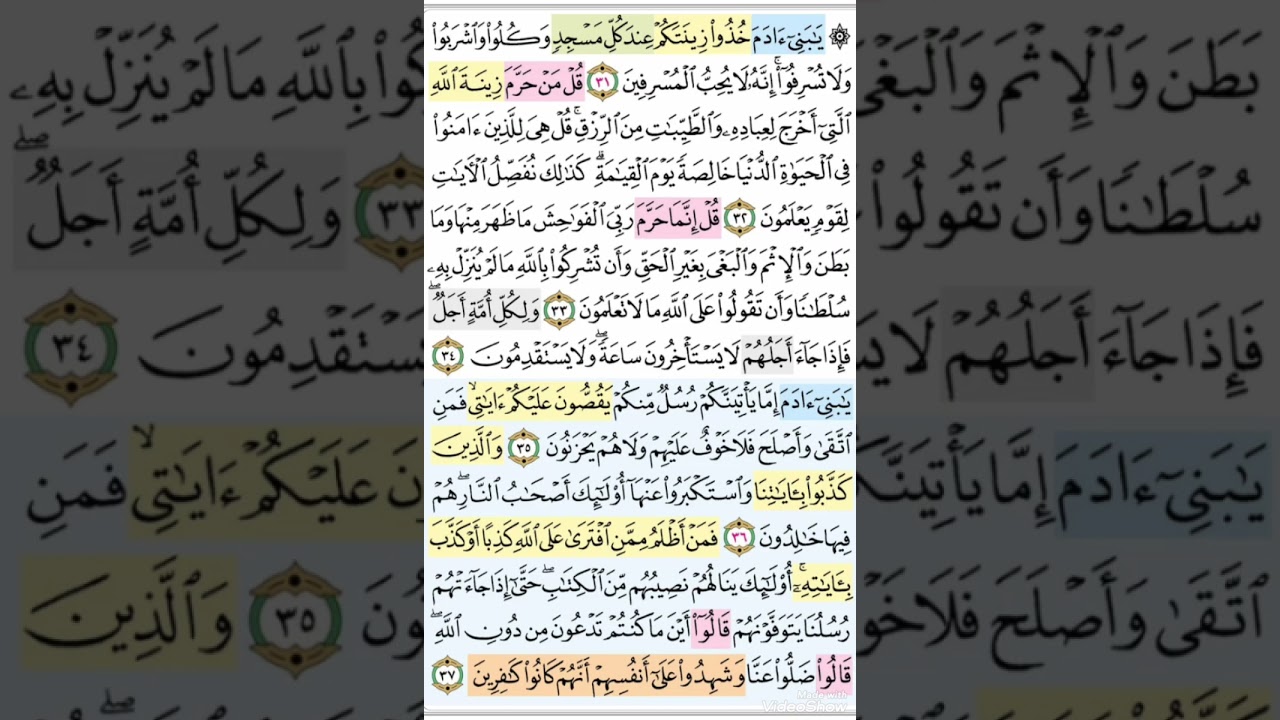 ۞ يَٰبَنِيٓ ءَادَمَ خُذُواْ زِينَتَكُمۡ عِندَ كُلِّ مَسۡجِدٖ وَكُلُواْ وَٱشۡرَبُواْ
وَلَا تُسۡرِفُوٓاْۚ إِنَّهُۥ لَا يُحِبُّ ٱلۡمُسۡرِفِينَ ٣١ قُلۡ مَنۡ حَرَّمَ زِينَةَ ٱللَّهِ
ٱلَّتِيٓ أَخۡرَجَ لِعِبَادِهِۦ وَٱلطَّيِّبَٰتِ مِنَ ٱلرِّزۡقِۚ قُلۡ هِيَ لِلَّذِينَ ءَامَنُواْ
فِي ٱلۡحَيَوٰةِ ٱلدُّنۡيَا خَالِصَةٗ يَوۡمَ ٱلۡقِيَٰمَةِۗ كَذَٰلِكَ نُفَصِّلُ ٱلۡأٓيَٰتِ
لِقَوۡمٖ يَعۡلَمُونَ ٣٢ قُلۡ إِنَّمَا حَرَّمَ رَبِّيَ ٱلۡفَوَٰحِشَ مَا ظَهَرَ مِنۡهَا وَمَا
بَطَنَ وَٱلۡإِثۡمَ وَٱلۡبَغۡيَ بِغَيۡرِ ٱلۡحَقِّ وَأَن تُشۡرِكُواْ بِٱللَّهِ مَا لَمۡ يُنَزِّلۡ بِهِۦ
سُلۡطَٰنٗا وَأَن تَقُولُواْ عَلَى ٱللَّهِ مَا لَا تَعۡلَمُونَ ٣٣ وَلِكُلِّ أُمَّةٍ أَجَلٞۖ
فَإِذَا جَآءَ أَجَلُهُمۡ لَا يَسۡتَأۡخِرُونَ سَاعَةٗۖ وَلَا يَسۡتَقۡدِمُونَ ٣٤
يَٰبَنِيٓ ءَادَمَ إِمَّا يَأۡتِيَنَّكُمۡ رُسُلٞ مِّنكُمۡ يَقُصُّونَ عَلَيۡكُمۡ ءَايَٰتِي ۙ فَمَنِ
ٱتَّقَىٰ وَأَصۡلَحَ فَلَا خَوۡفٌ عَلَيۡهِمۡ وَلَا هُمۡ يَحۡزَنُونَ ٣٥ وَٱلَّذِينَ
كَذَّبُواْ بِـَٔايَٰتِنَا وَٱسۡتَكۡبَرُواْ عَنۡهَآ أُوْلَٰٓئِكَ أَصۡحَٰبُ ٱلنَّارِۖ هُمۡ
فِيهَا خَٰلِدُونَ ٣٦ فَمَنۡ أَظۡلَمُ مِمَّنِ ٱفۡتَرَىٰ عَلَى ٱللَّهِ كَذِبًا أَوۡ كَذَّبَ
بِـَٔايَٰتِهِۦٓۚ أُوْلَٰٓئِكَ يَنَالُهُمۡ نَصِيبُهُم مِّنَ ٱلۡكِتَٰبِۖ حَتَّىٰٓ إِذَا جَآءَتۡهُمۡ
رُسُلُنَا يَتَوَفَّوۡنَهُمۡ قَالُوٓاْ أَيۡنَ مَا كُنتُمۡ تَدۡعُونَ مِن دُونِ ٱللَّهِۖ
قَالُواْ ضَلُّواْ عَنَّا وَشَهِدُواْ عَلَىٰٓ أَنفُسِهِمۡ أَنَّهُمۡ كَانُواْ كَٰفِرِينَ ٣٧
Made with
VideoShow